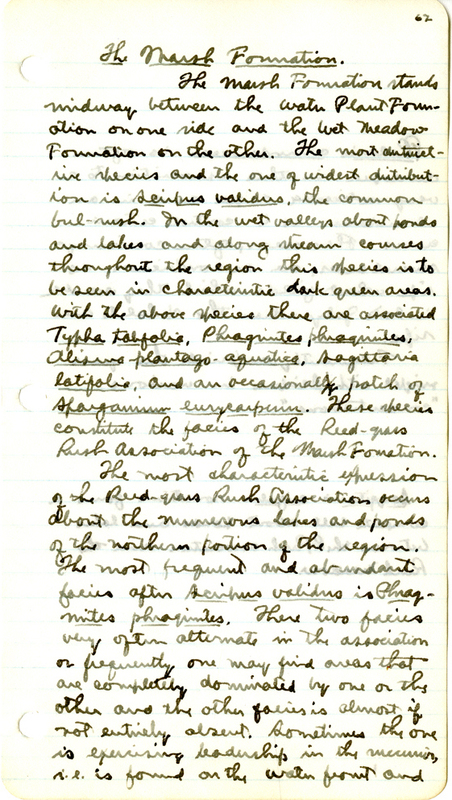 62
The Marsh Formation.
The Marsh Formation stands
midway between the Water Plant Form-
ation on one side and the Wet Meadow
Formation on the other. The most distinct-
ive species and the one of widest distribut-
ion is Scirpus validus, the common
bul-rush. In the wet valleys about ponds
and lakes and along stream courses
throughout the region this species is to
be seen in characteristic dark green areas.
With the above species there are associated
Typha latifolia, Phragmites phragmites,
Alisma plantago-aquatica, Sagittaria
latifolia, and an occasional patch of
Sparganium eurycarpum. These species
constitute the facies of the Reed-grass
Rush Association of the Marsh Fomation.
The most characteristic expression
of the Reed-grass Rush Association occurs
about the numerous lakes and ponds
of the northern portion of the region.
The most frequent and abundant
facies after Scirpus validus is Phrag-
mites phragmites. These two facies
very often alternate in the association
or frequently one may find areas that
are completely dominated by one or the
other and the other facies is almost if
not entirely absent. Sometimes the one
is exercising leadership in the succession,
i.e. is found on the water front and